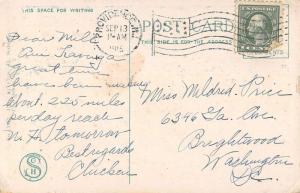 THIS SPACE FOR WRITING
POST CARD
THIS SIDE IS FOR THE ADDRESS
PROVIDENCE, R.I.
SEP 13
AM
Dear Mil
Am having
great time
have been making
about 220 miles
per day reach
N.H. tomorrow
Best regards
Miss Mildred Price
6346 Ga. Ave
Brightwood
Washington
D.C.